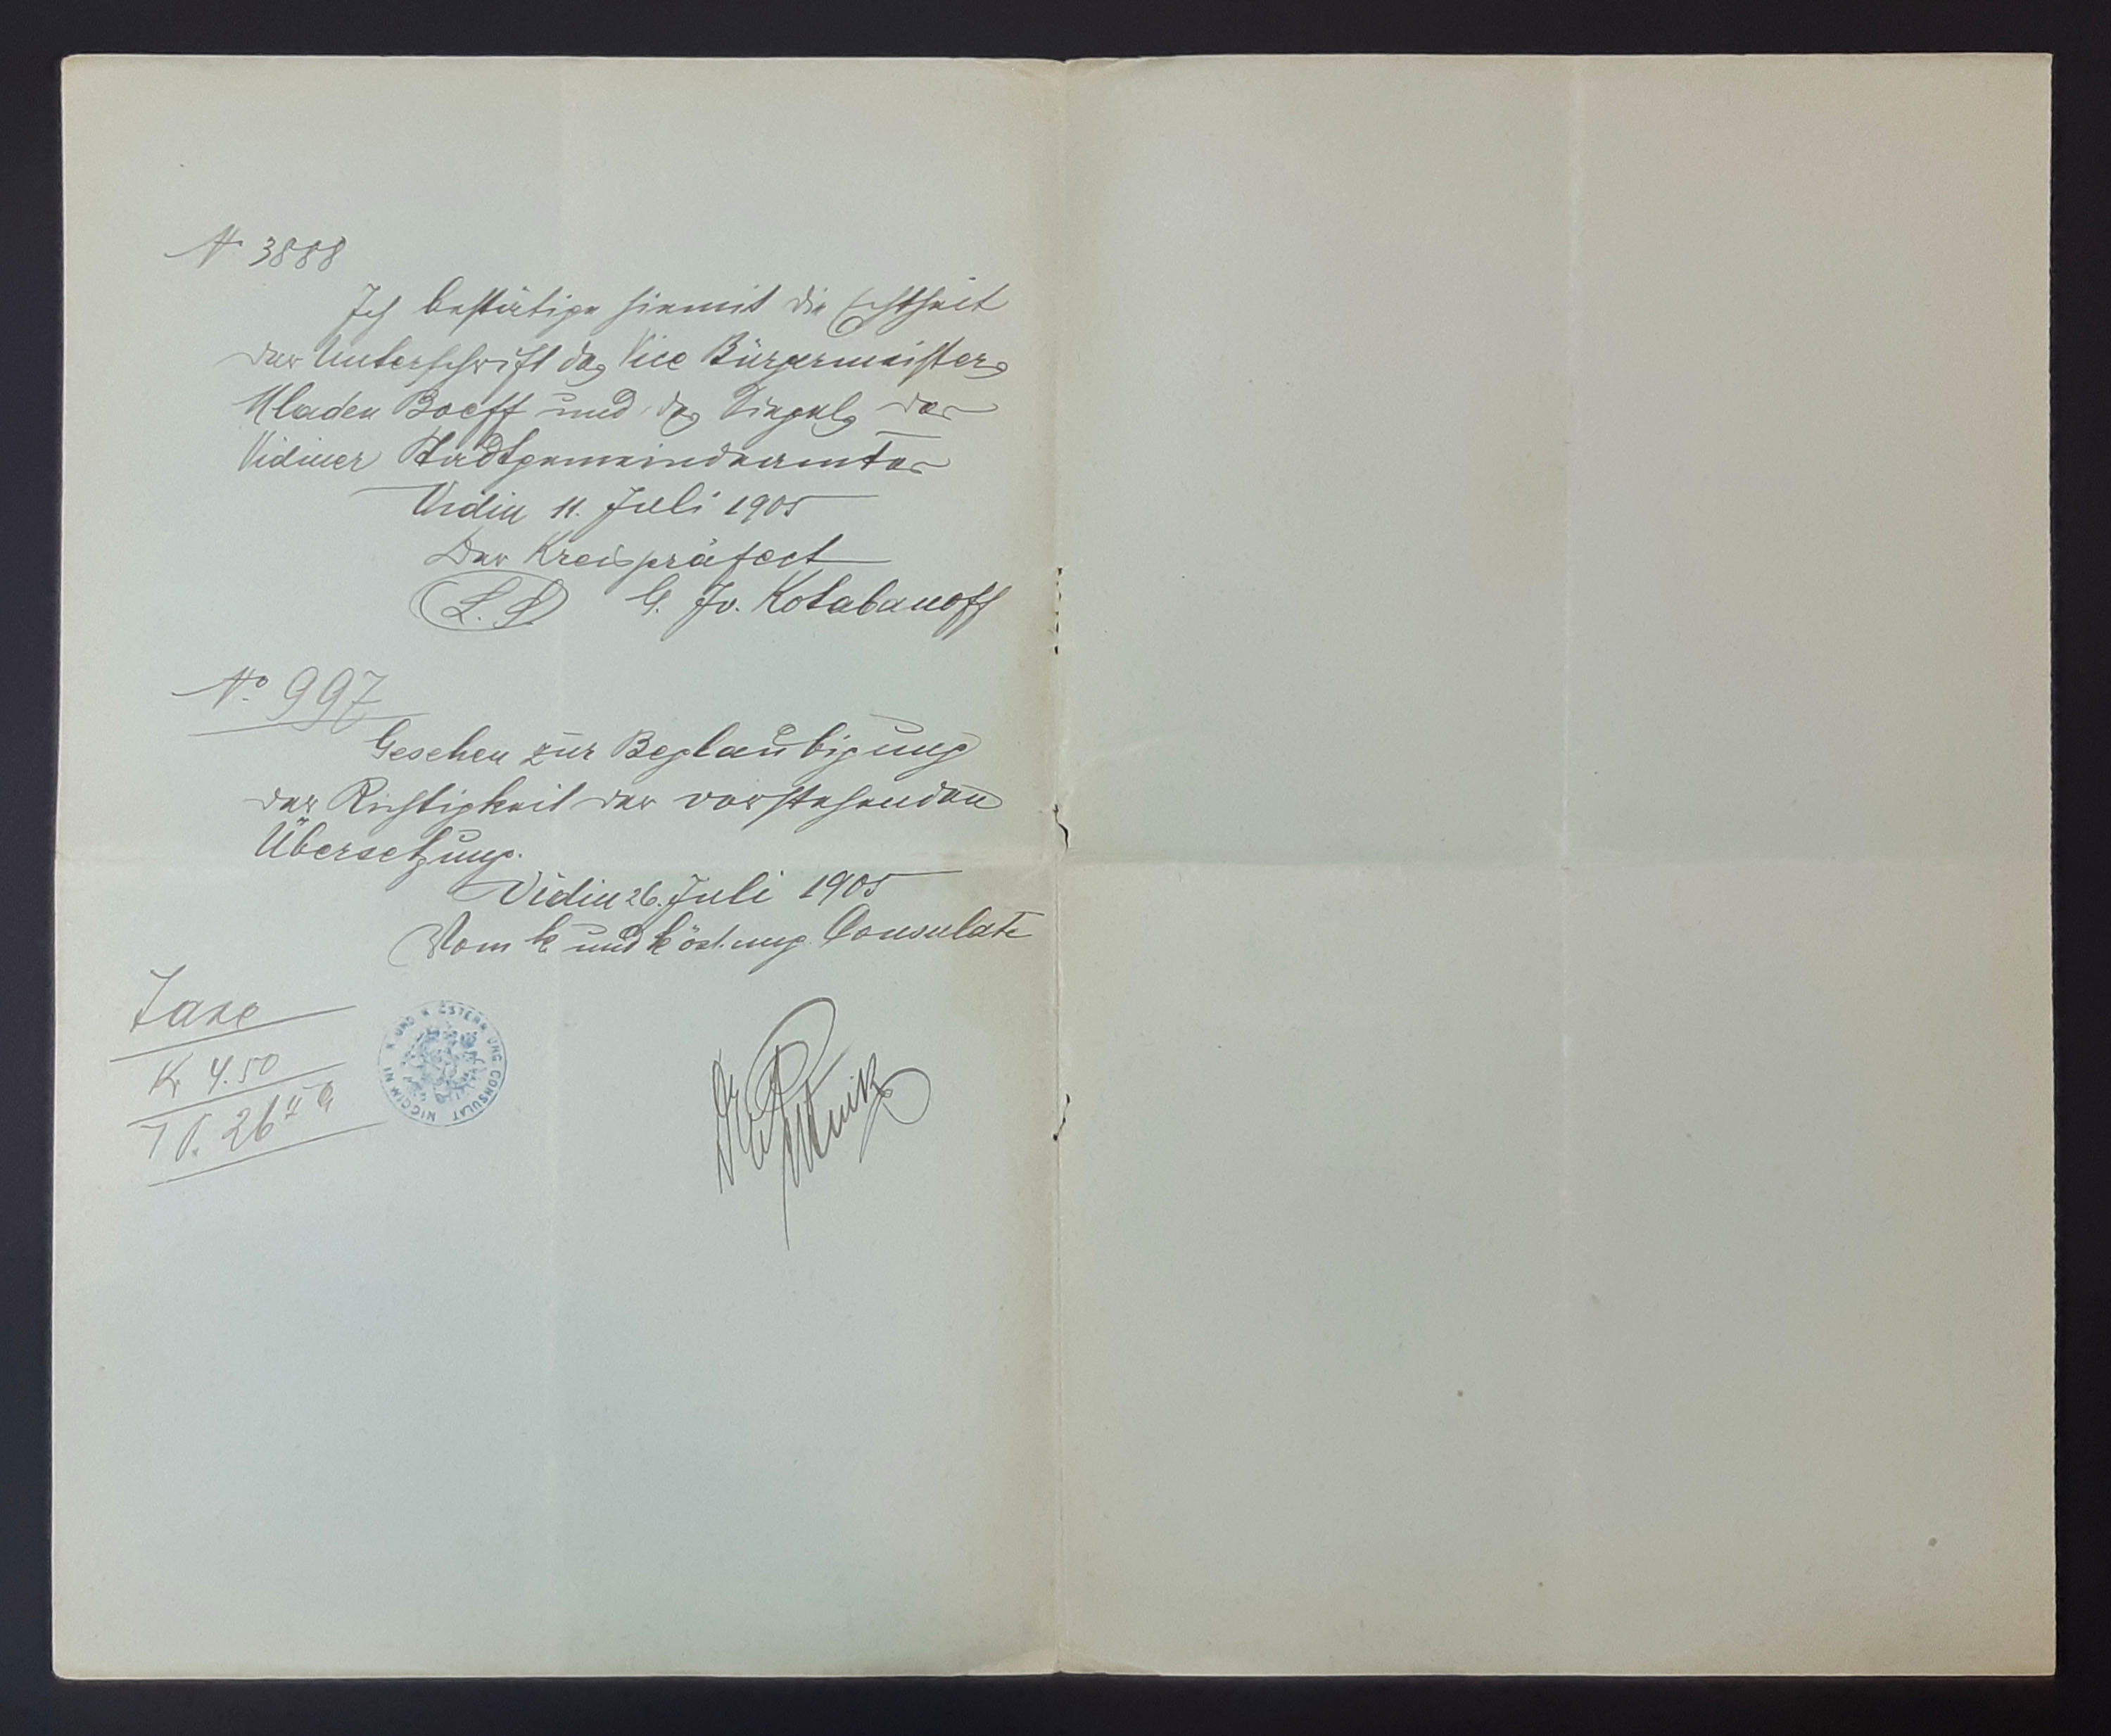 No 3888
Ich bestätige hiemit die Echtheit
der Unterschrift des Vice Bürgermeisters
Mladen Boeff und des Siegels der
Vidiner Stadtgemeindeamtes
Vidin 11. Juli 1905
Der Kreispräfect
L.S. G. Iv. Kotabanoff
No 997
Gesehen zur Beglaubigung
der Richtigkeit der vorstehenden
Übersetzung.
Vidin 26. Juli 1905
Vom k und k öst. ung. Consulate
Taxe
K 4.50
T P. 26
K UND K ÖSTERR UNG CONSULAT IN WIDDIN
Dr